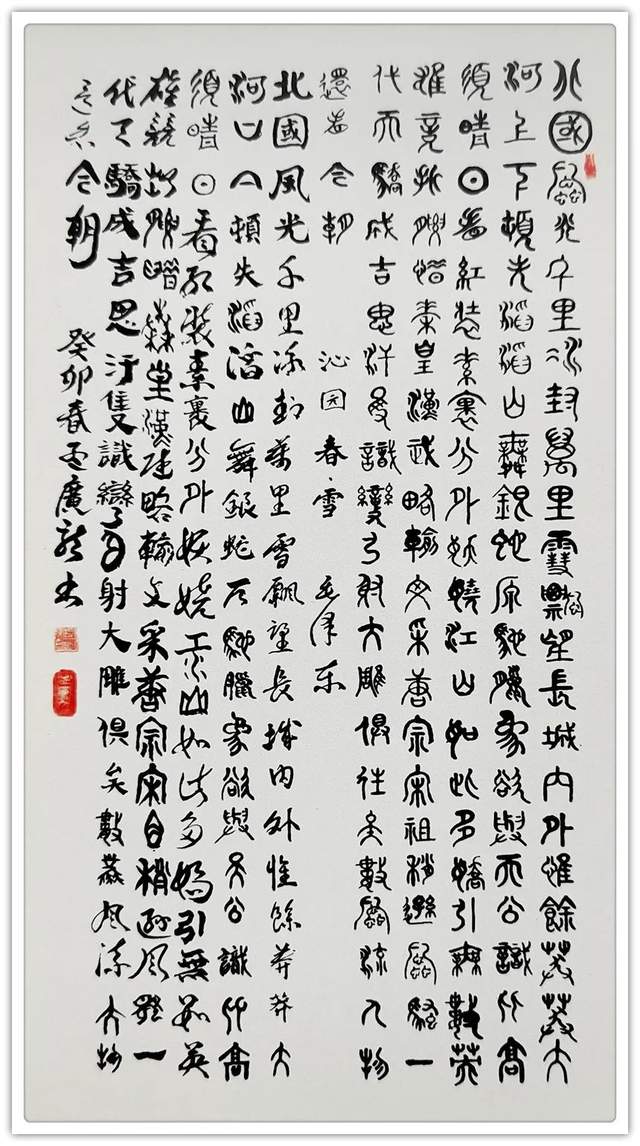 北國風光千里冰封萬里雪飄望長城內外惟餘莽莽大
河上下頓失滔滔山舞銀蛇原馳臘象欲與天公識比高
須晴日看紅裝素裹分外妖嬈江山如此多嬌引無數英
雄競折腰惜秦皇漢武略輸文采唐宗宋祖稍遜風騷一
代天驕成吉思汗隻識彎弓射大雕俱往矣數風流人物
還看今朝 沁园春·雪 毛澤东
北國風光千里冰封萬里雪飄望長城內外惟餘莽莽大
河上下頓失滔滔山舞銀蛇原馳臘象欲與天公識比高
須晴日看紅裝素裹分外妖嬈江山如此多嬌引無數英
雄競折腰惜秦皇漢武略輸文采唐宗宋祖稍遜風騷一
代天驕成吉思汗隻識彎弓射大雕俱往矣數風流人物
還看今朝 癸卯春 廣龍書